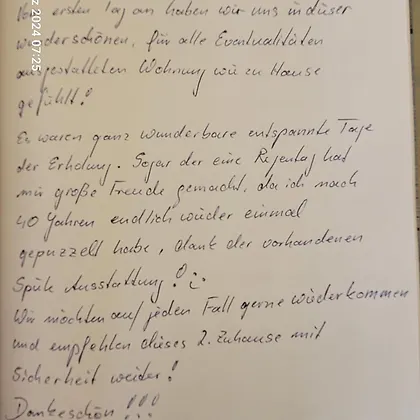 Vom ersten Tag an haben wir uns in dieser
wunderschönen, für alle Eventualitäten
ausgestatteten Wohnung wie zu Hause
gefühlt!
Es waren ganz wunderbare entspannte Tage
der Erholung. Sogar der eine Regentag hat
mir große Freude gemacht, da ich nach
40 Jahren endlich wieder einmal
gepuzzelt habe, dank der vorhandenen
Spiele Ausstattung!
Wir möchten auf jeden Fall gerne wiederkommen
und empfehlen dieses 2. Zuhause mit
Sicherheit weiter!
Dankeschön!!!
2024 07:25